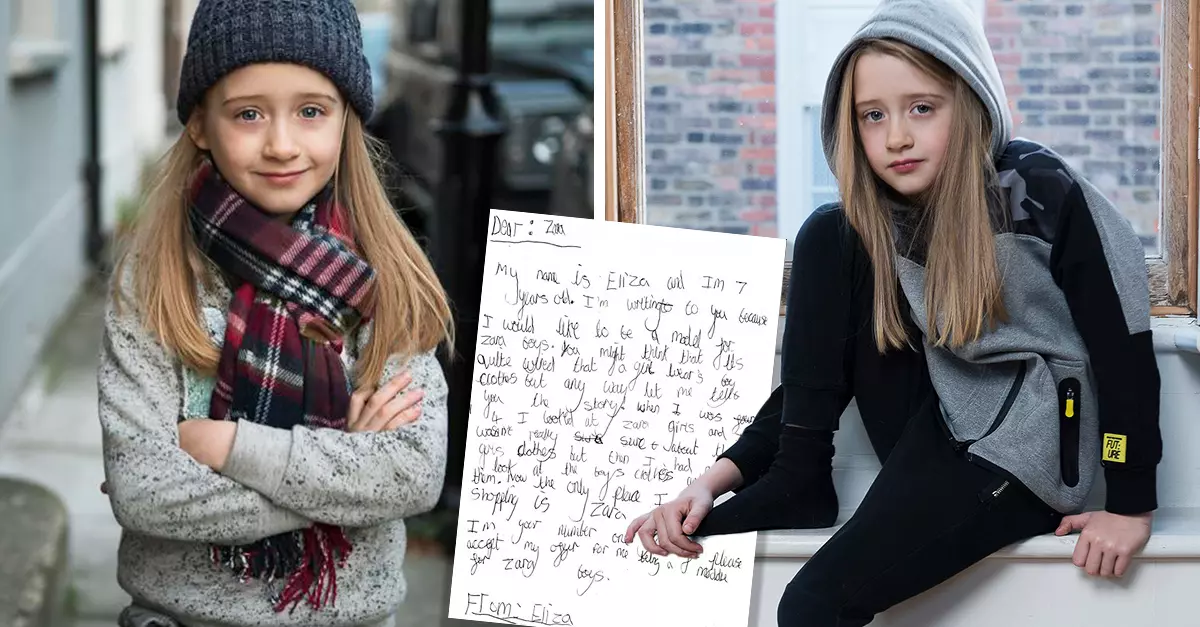 Dear: Zara
My name is Eliza and Im 7
years old. I'm writing to you because
I would like to be a model for
zara boys. You might think that its
quite wired that a girl wears boy
clothes but any way let me tell
you the story. when I was
4 I looked at zara girls and
wasint really sure about
girls clothes but then I had
look at the boys clothes
them. Now the only place I
shopping is zara
I'm your number one please
accept my offer for me being a modle
for zara boys.
From: Eliza
FUT:
URE